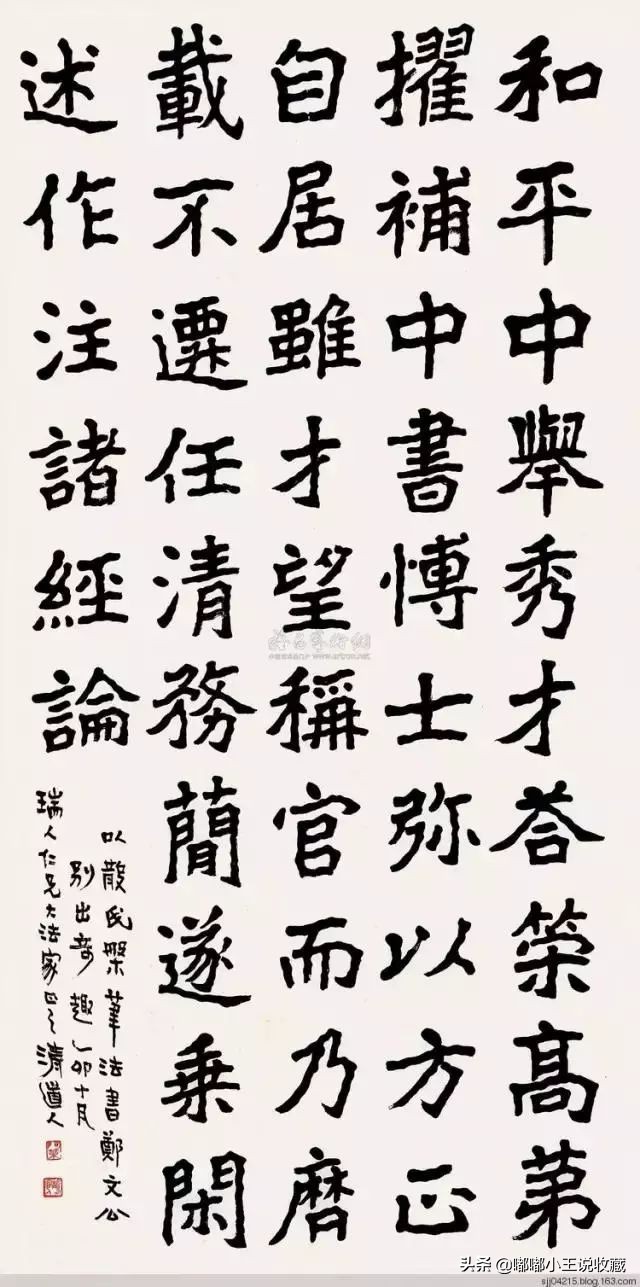 和平中舉秀才荅榮高苐
擢補中書愽士弥以方正
自居雖才望稱官而乃曆
載不遷任清務簡遂乗閑
述作注諸經論
以散氏槃筆法書鄭文公
别出奇趣乙卯十月
瑞人仁兄大法家正之清道人
头条 @嘟嘟小王说收藏
sjj04215.blog.163.com